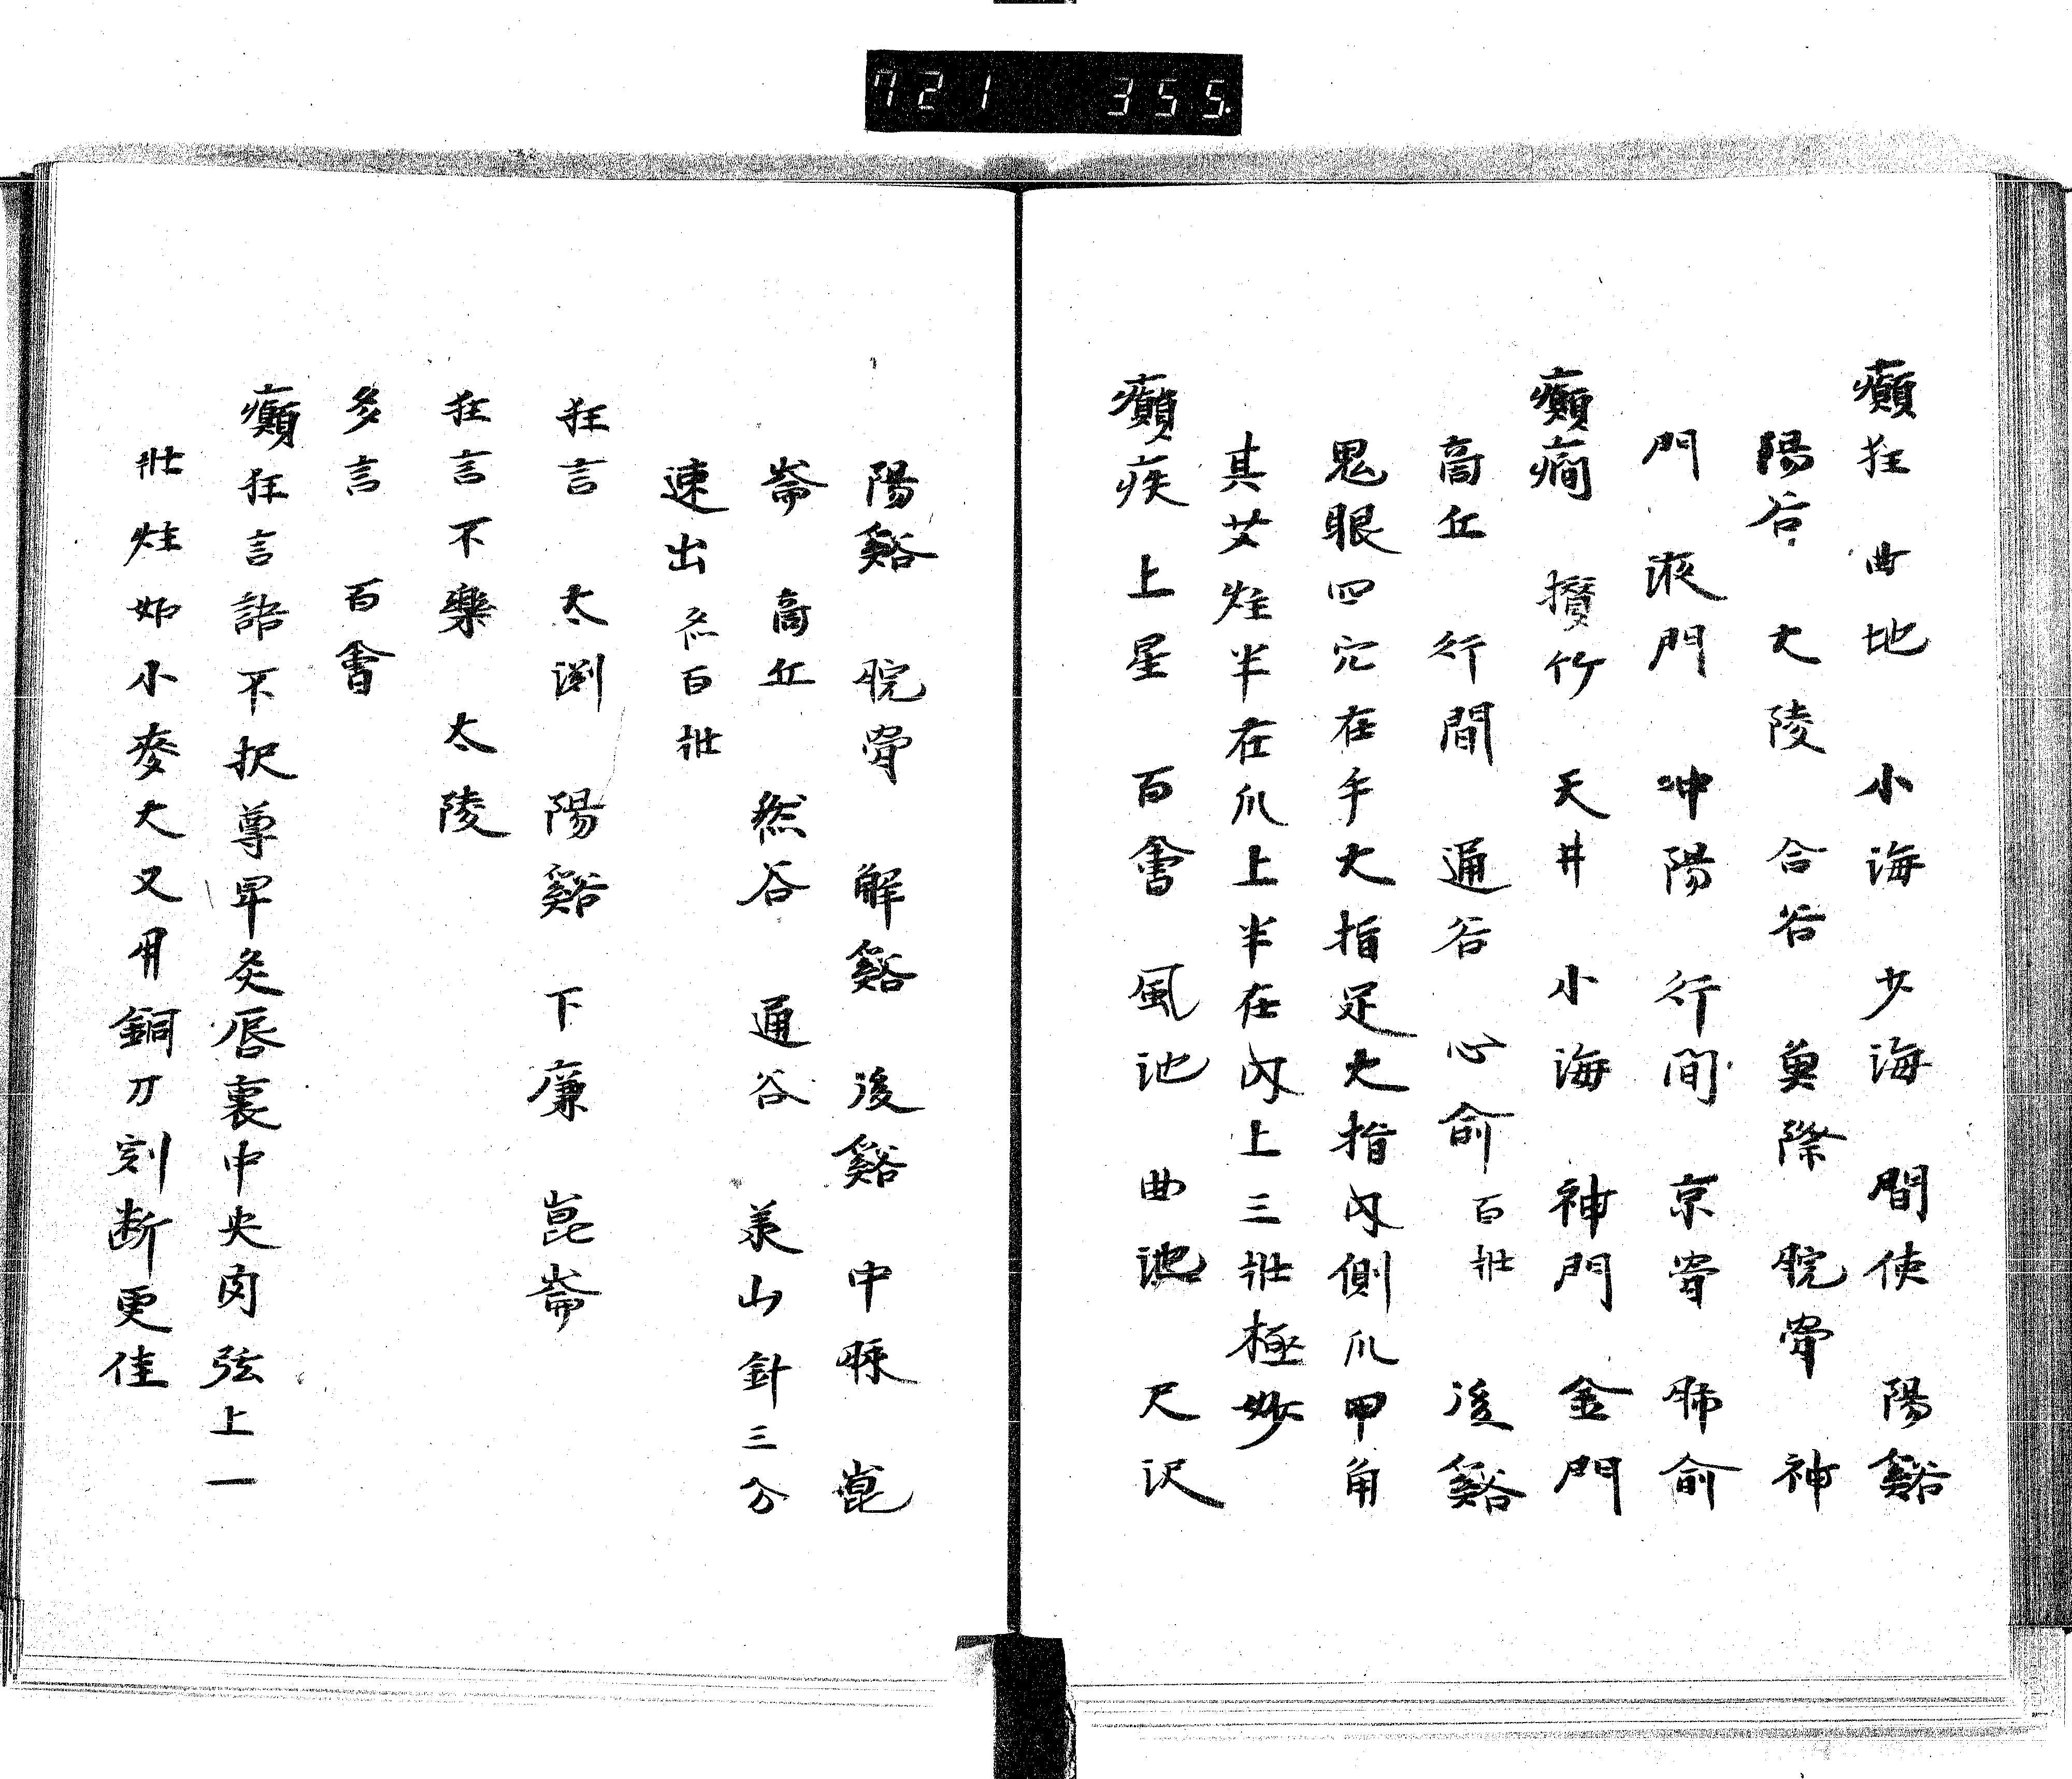 721 355
癲狂 曲地 小海 少海 間使 陽谿
陽谷 大陵 合谷 魚際 腕骨 神
門 液門 冲陽 行間 京骨 肺俞
癲癇 攢竹 天井 小海 神門 金門
商丘 行間 通谷 心俞 百壯 後谿
鬼眼四穴在手大指足大指內側爪甲角
其艾炷半在爪上半在內上三壯極妙
癲疾 上星 百會 風池 曲池 尺沢
陽谿 腕骨 解谿 後谿 申脉 崑
崙 商丘 然谷 通谷 羕山針三分
速出灸百壯
狂言 太渕 陽谿 下廉 崑崙
狂言不樂 太陵
多言 百會
癲狂言語不択尊卑灸唇裏中央肉弦上一
壯炷如小麥大又用銅刀割断更佳